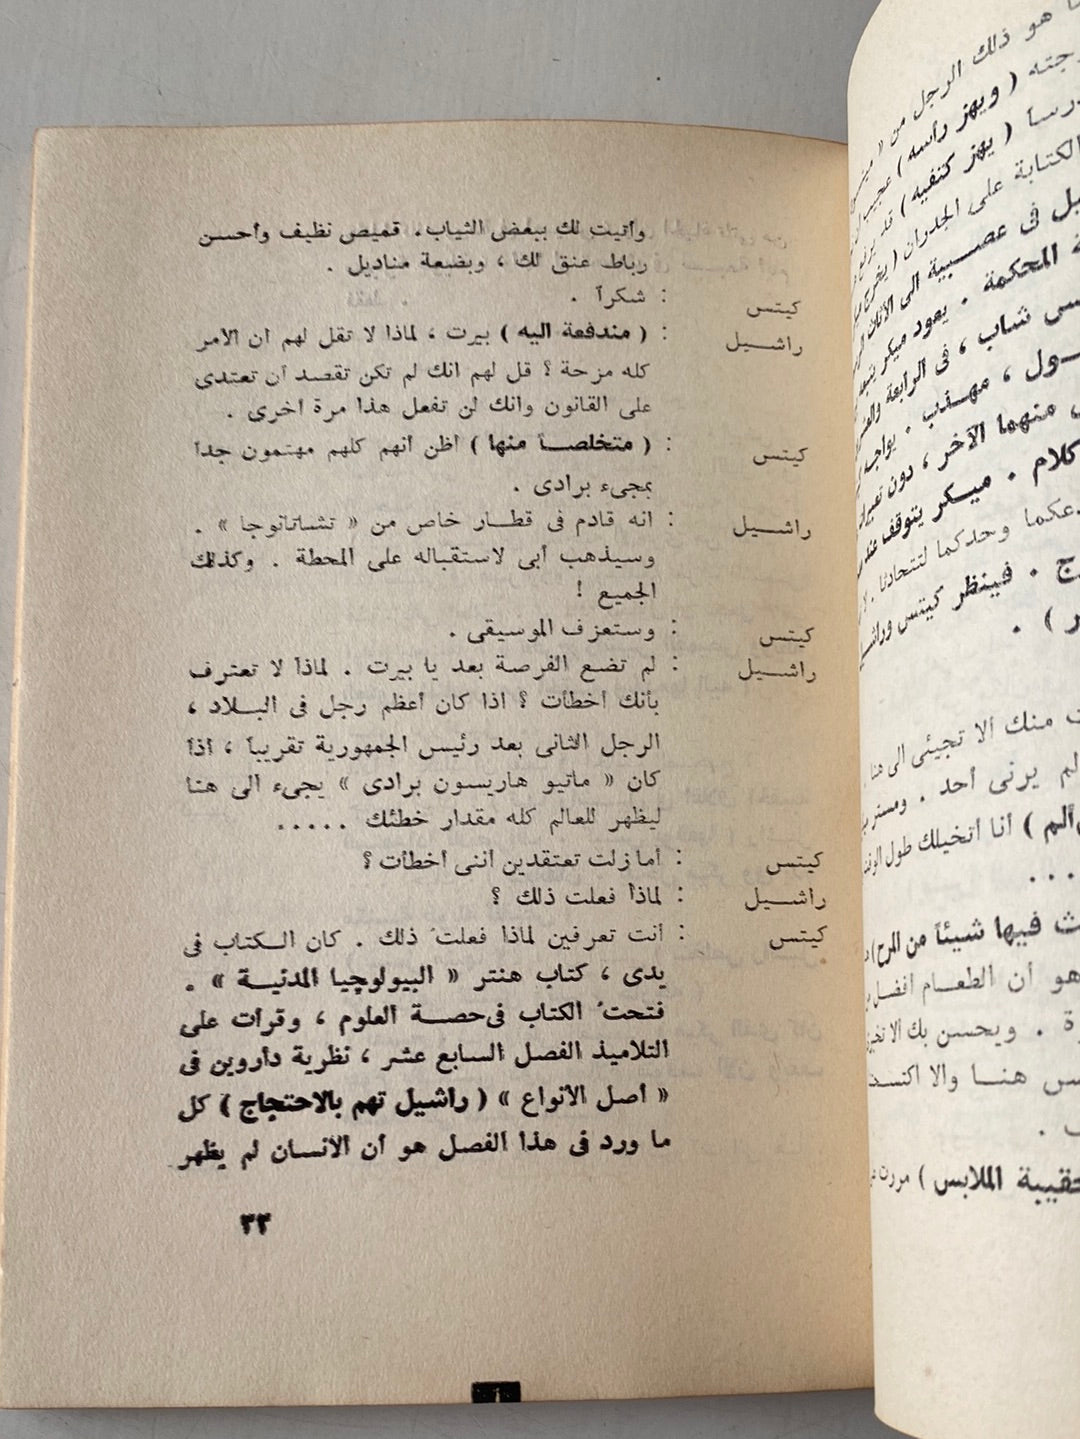 وأتيت لك ببعض الثياب. قميص نظيف وأحسن
رباط عنق لك ، وبضعة مناديل .
كيتس : شكراً .
راشـــيل : ( مندفعة اليه ) بيرت ، لماذا لا تقل لهم ان الأمر
كله مزحة ؟ قل لهم انك لم تكن تقصد أن تعتدى
على القانون وانك لن تفعل هذا مرة أخرى .
كيتس : ( متخلصـاً منها ) أظن أنهم كلهم مهتمون جداً
بمجىء برادى .
راشـــيل : انه قادم فى قطـار خاص من « تشاتانوجا » .
وسيذهب أبى لاستقباله على المحطة . وكذلك
الجميع !
كيتس : وستعزف الموسيقى .
راشـــيل : لم تضع الفرصة بعد يا بيرت . لماذا لا تعترف
بأنك أخطأت ؟ اذا كان أعظم رجل فى البـلاد ،
الرجل الثانى بعد رئيس الجمهورية تقريباً ، اذا
كان « ماتيو هاريسون برادى » يجىء الى هنا
ليظهر للعالم كله مقدار خطئك .....
كيتس : أمازلت تعتقدين أننى أخطأت ؟
راشـــيل : لماذا فعلت ذلك ؟
كيتس : أنت تعرفين لماذا فعلتُ ذلك . كان الـكتاب فى
يدى ، كتاب هنتر « البيولوجيا المدنيـة » .
فتحتُ الكتاب فى حصـة العلوم ، وقرأت على
التلاميذ الفصل السابع عشر ، نظرية داروين فى
« أصل الأنواع » ( راشيل تهم بالاحتجاج ) كل
ما ورد فى هذا الفصل هو أن الانسان لم يظهر
٣٣
هو ذلك الرجل من
( ويهز رأسه )
( يهز كتفيه )
الكتابة على الجدران
فى عصـبية الى
المحكمة . يعود ميكر
شاب ، فى الرابعة
، مهـذب . يواجه
منهما الآخر ، دون
كلام . ميـكر يتوقف
وحدكما لتتحادثا .
. فينظر كيتس
) .
منك ألا تجيئى الى هنا
لم يرنى أحد .
) أنا أتخيلك طول
....
فيها شيئاً من المرح )
هو أن الطعـام أفضل
. ويحسن بك ألا
هنـا والا
.
الملابس ) مررت